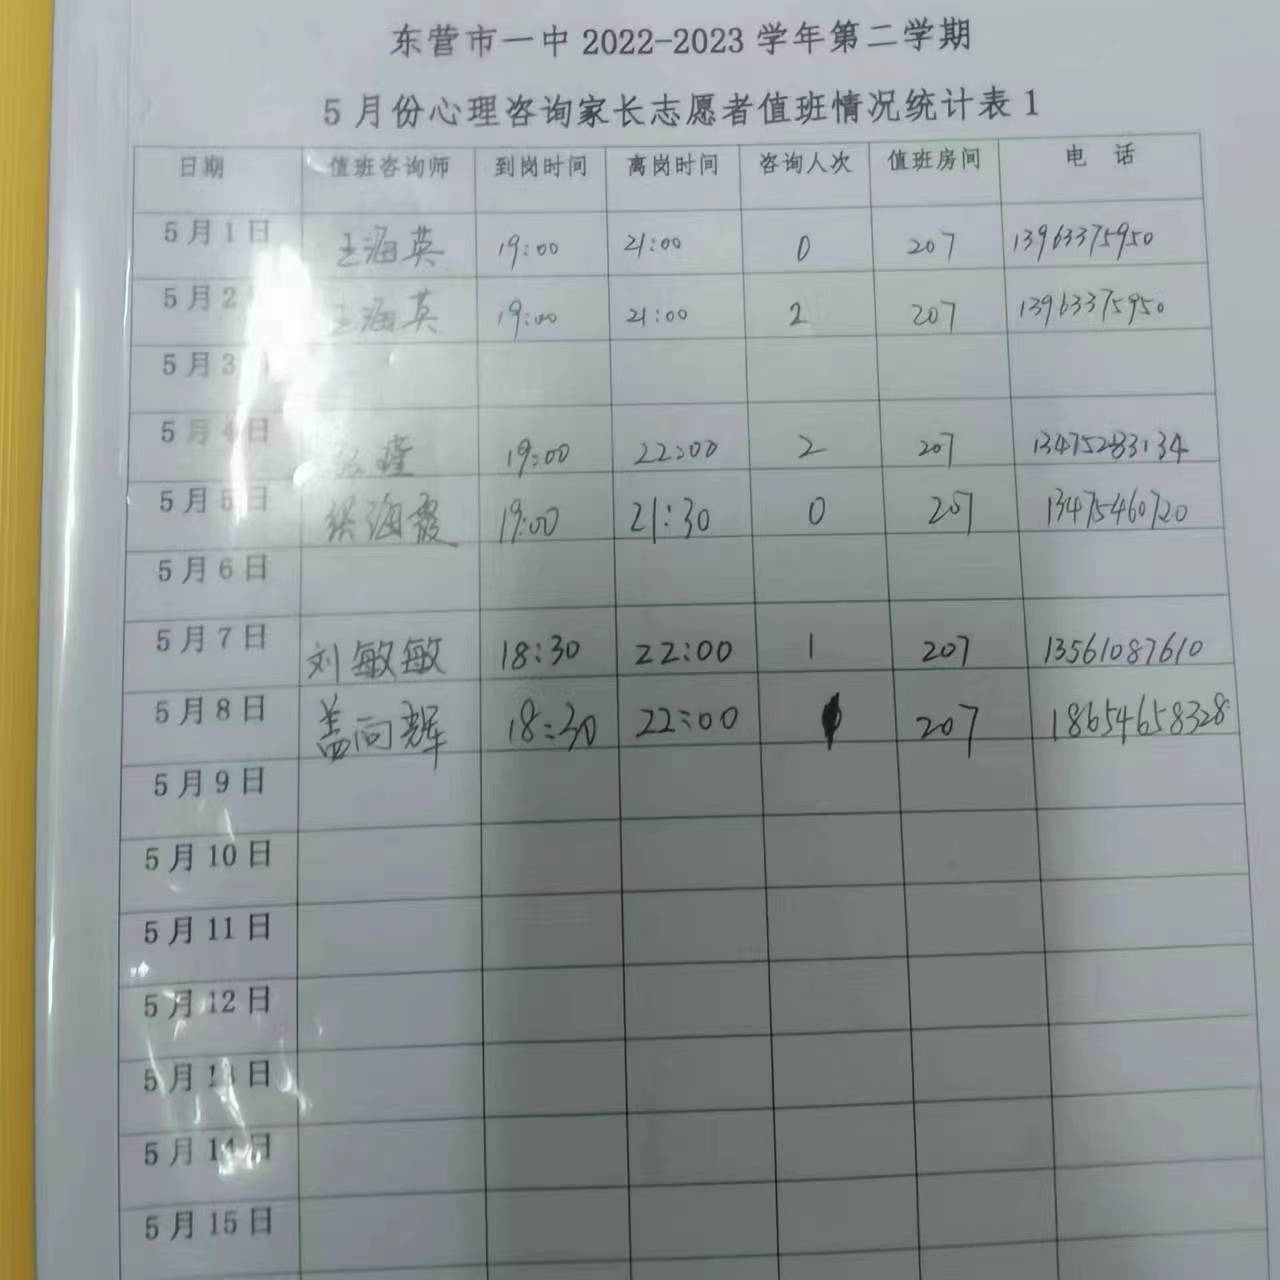 东营市一中2022-2023学年第二学期
5月份心理咨询家长志愿者值班情况统计表1
日期 值班咨询师 到岗时间 离岗时间 咨询人次 值班房间 电 话
5月1日 王海英 19:00 21:00 0 207 13963375950
5月2 王海英 19:00 21:00 2 207 13963375950
5月3
5月4日 19:00 22:00 2 207 13475283134
5月5日 张海霞 19:00 21:30 0 207 13475460720
5月6日
5月7日 刘敏敏 18:30 22:00 1 207 13561087610
5月8日 盖向辉 18:30 22:00 207 18654658328
5月9日
5月10日
5月11日
5月12日
5月13日
5月14日
5月15日